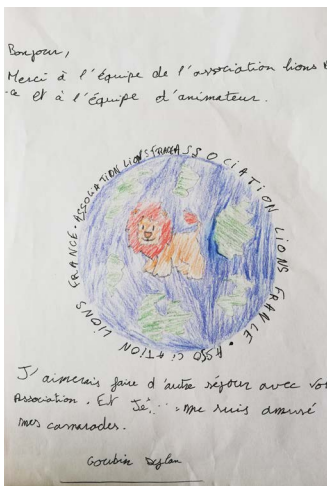 Bonjour,
Merci à l'équipe de l'association lions
-ce et à l'équipe d'animateur.
ASSOCIATION LIONS FRANCE • ASSOCIATION LIONS FRANCE • ASSOCIATION LIONS
J'aimerais faire d'autre séjour avec
Association. Et me suis amusé
mes camarades.
Goubin Dylan